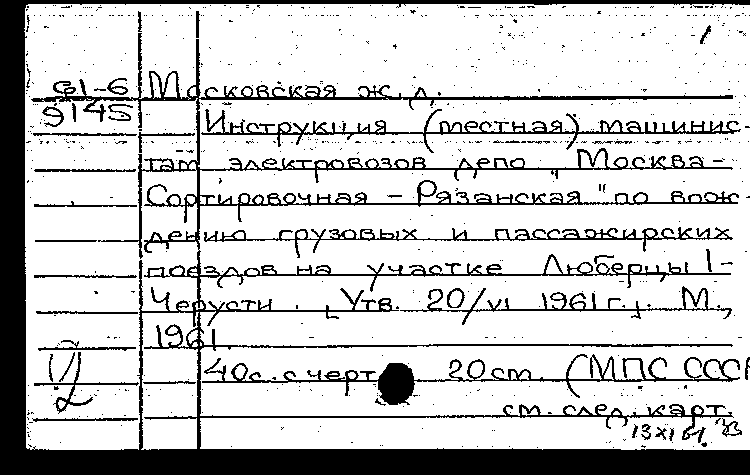 1
61-6 Московская ж. д.
9145 Инструкция (местная) машинис-
там электровозов депо „Москва-
Сортировочная - Рязанская" по вож-
дению грузовых и пассажирских
поездов на участке Люберцы 1-
Черусти. [Утв. 20/VI 1961 г.]. М.,
1961.
40 с. с черт 20 см. (МПС СССР
см. след. карт.
13 XI 61.